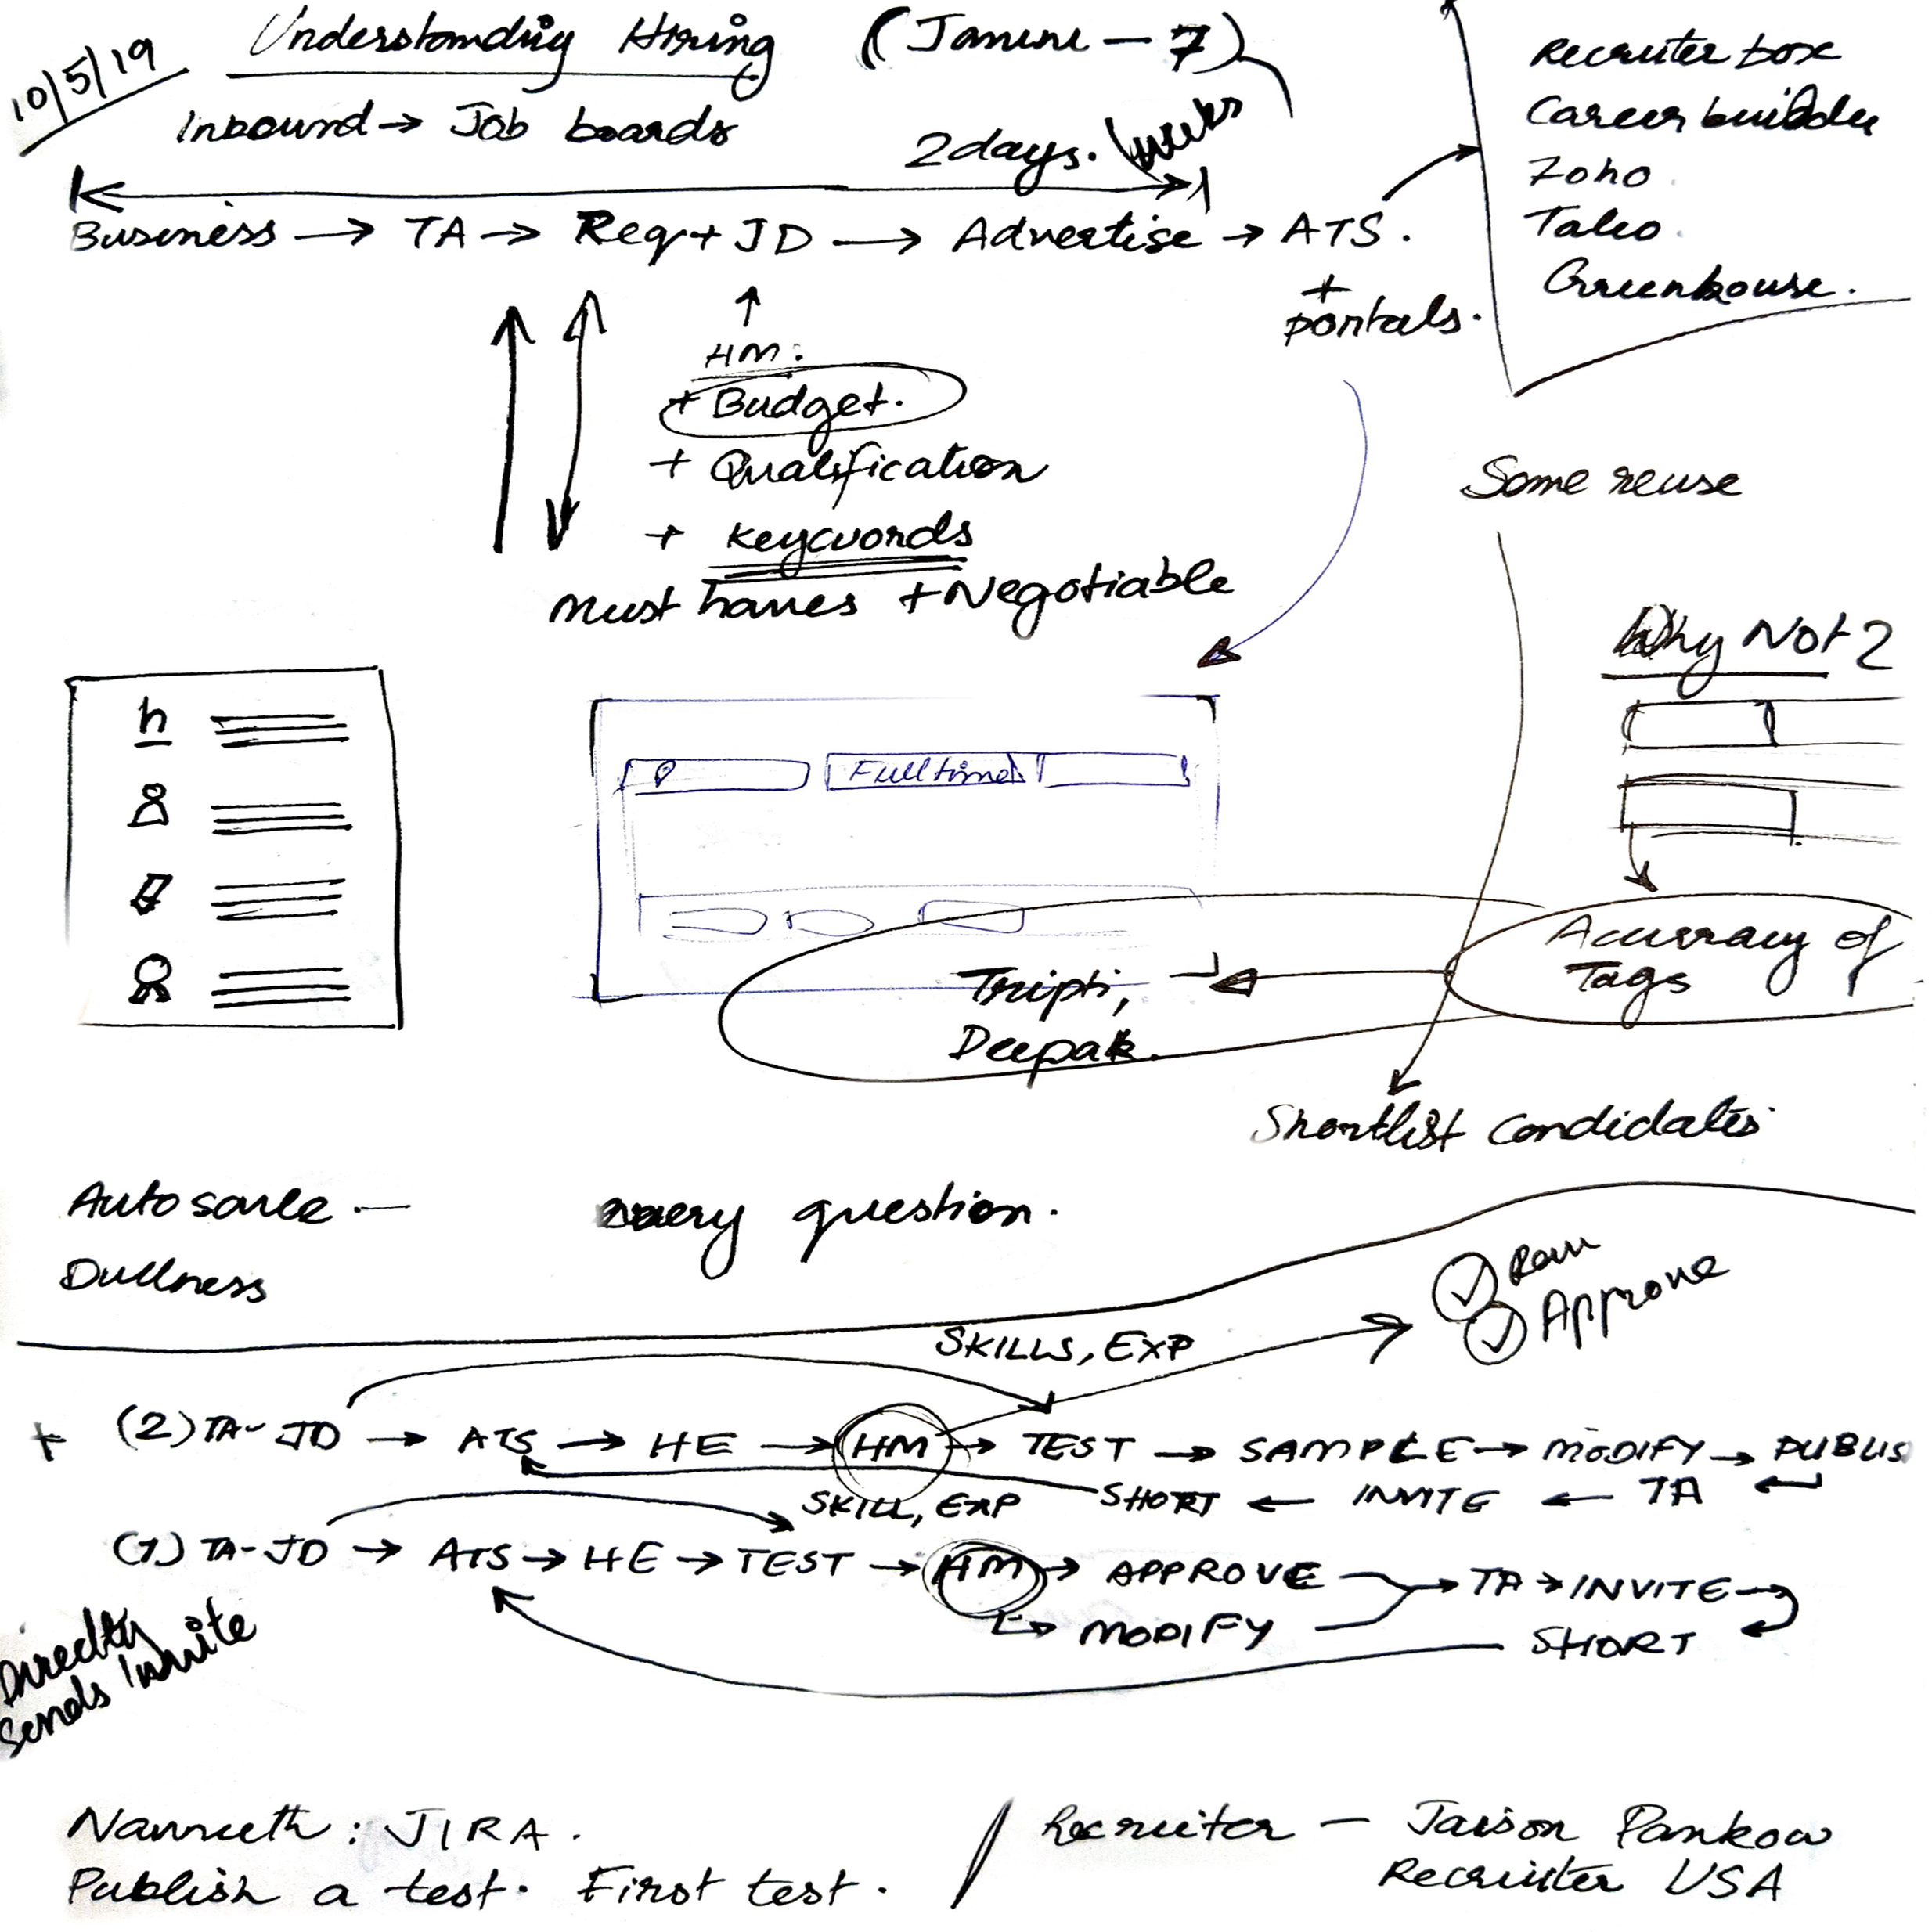 10/5/19
Understanding Hiring (Janine - 7)
Inbound → Job boards
2 days. (weeks
Business → TA → Req + JD → Advertise → ATS.
+
portals.
Recruiter box
Career builder
Zoho
Taleo
Greenhouse.
HM:
+ Budget.
+ Qualification
+ keywords
Must haves + Negotiable
Some reuse
Why Not 2
h
Full time
Accuracy of
Tags
Tripti,
Deepak.
Shortlist candidates
Auto save — every question.
Dullness
Approve
SKILLS, EXP
+ (2) TA - JD → ATS → HE → HM → TEST → SAMPLE → MODIFY → PUBLIS
SHORT ← INVITE ← TA ←
SKILL, EXP
(1) TA - JD → ATS → HE → TEST → HM → APPROVE → TA → INVITE →
↳ MODIFY
SHORT
Directly
Sends Invite
Navneeth : JIRA.
Publish a test. First test.
/ Recruiter — Jaison Pankow
Recruiter USA